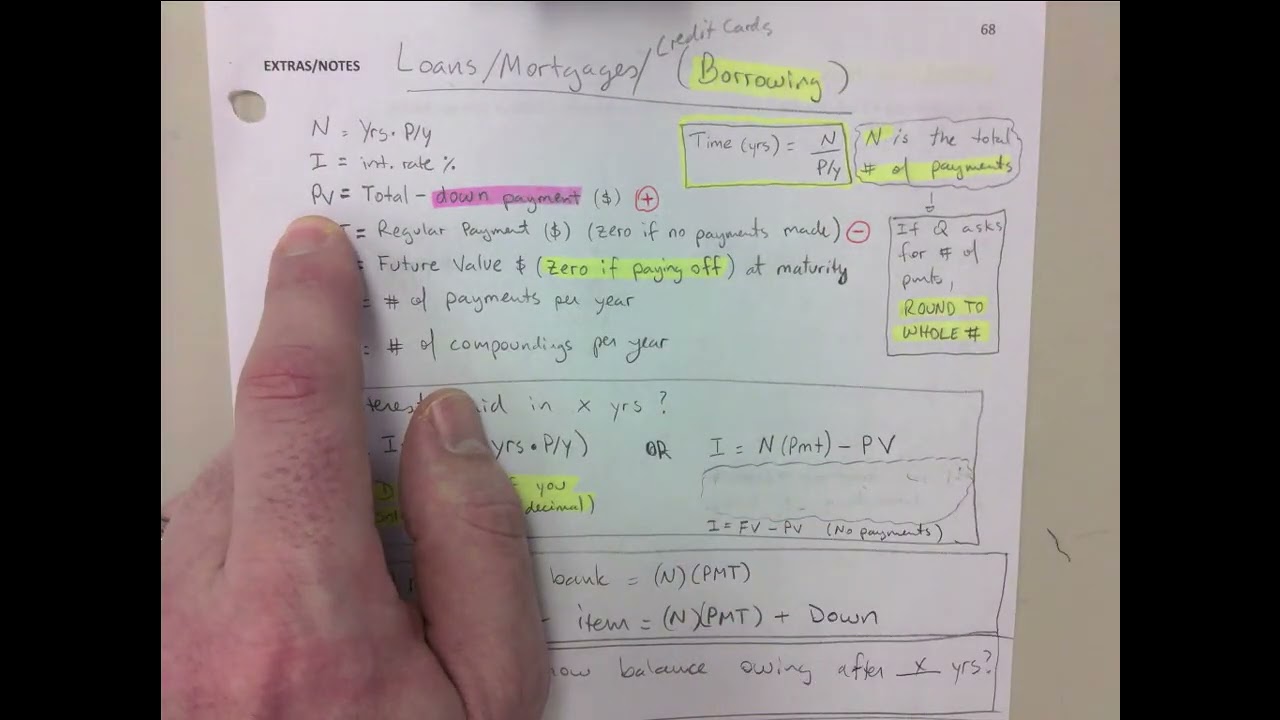 68
EXTRAS/NOTES Loans/Mortgages/ Credit Cards (Borrowing)
N = Yrs· P/y
I = int. rate %
PV = Total - down payment ($) +
= Regular Payment ($) (zero if no payments made) -
= Future Value $ (zero if paying off) at maturity
= # of payments per year
= # of compoundings per year
Time (yrs) = N / P/y
N is the total
# of payments
If Q asks
for # of
pmts,
ROUND TO
WHOLE #
in x yrs?
I yrs•P/y) OR I = N(Pmt) - PV
you
decimal)
I = FV - PV (No payments)
bank = (N)(PMT)
item = (N)(PMT) + Down
how balance owing after x yrs?